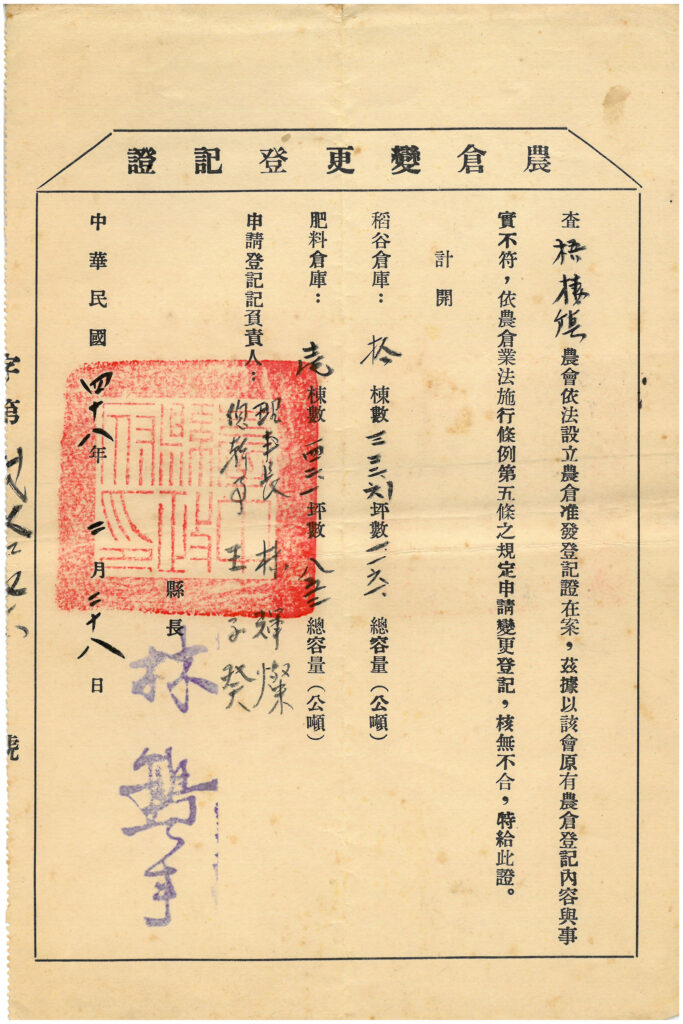 農倉變更登記證
查梧棲鎮農會依法設立農倉准發登記證在案，茲據以該會原有農倉登記內容與事
實不符，依農倉業法施行條例第五條之規定申請變更登記，核無不合，特給此證。
計開
稻谷倉庫：拾棟數坪數總容量（公噸）
肥料倉庫：壱棟數坪數總容量（公噸）
申請登記記負責人：理事長 林輝燦
總幹事 王子癸
縣長 林鶴年
中華民國四十八年二月二十八日
字第號